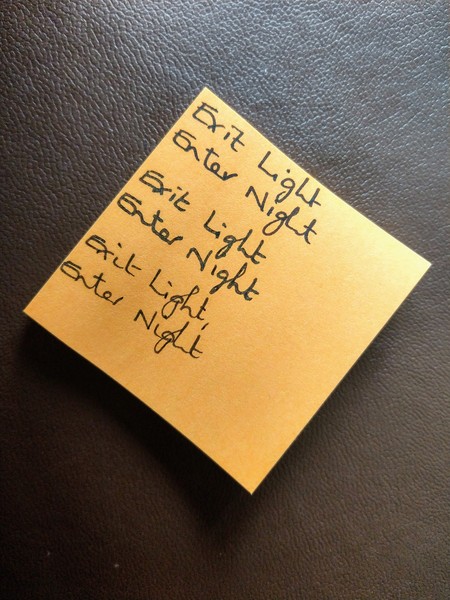 Exit Light
Enter Night
Exit Light
Enter Night
Exit Light,
Enter Night